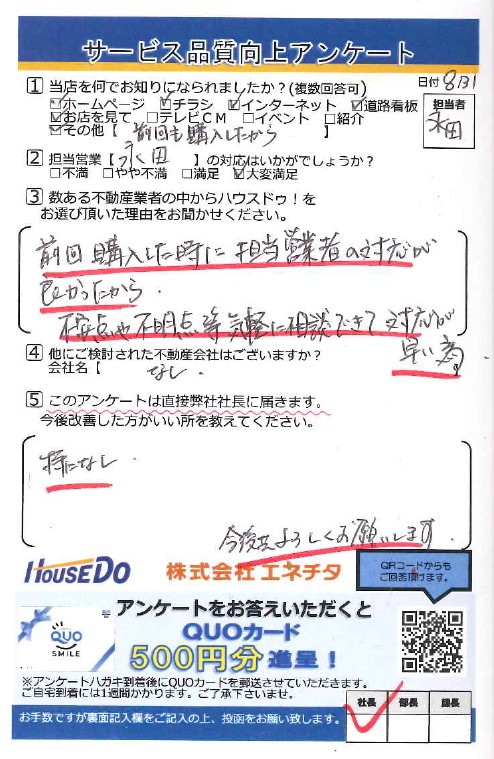 サービス品質向上アンケート
日付 8/31
1 当店を何でお知りになられましたか？(複数回答可)
☑ホームページ ☑チラシ ☑インターネット ☑道路看板
☑お店を見て □テレビCM □イベント □紹介
☑その他【 前回も購入したから 】
担当者
永田
2 担当営業【 永田 】の対応はいかがでしょうか？
□不満 □やや不満 □満足 ☑大変満足
3 数ある不動産業者の中からハウスドゥ！を
お選び頂いた理由をお聞かせください。
前回購入した時に担当営業者の対応が
良かったから.
不明点等気軽に相談できて対応が
早い為
4 他にご検討された不動産会社はございますか？
会社名【 なし.
5 このアンケートは直接弊社社長に届きます。
今後改善した方がいい所を教えてください。
特になし.
今後共よろしくお願いします.
HOUSEDO 株式会社 エネチタ
QRコードからも
ご回答頂けます。
アンケートをお答えいただくと
QUOカード
500円分進呈！
QUO
SMILE
※アンケートハガキ到着後にQUOカードを郵送させていただきます。
ご自宅到着には1週間かかります。ご了承下さいませ。
お手数ですが裏面記入欄をご記入の上、投函をお願い致します。
社長 部長 課長